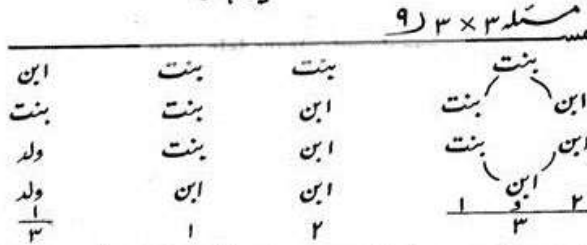 مسئلہ ۳ × ۳ (۹
بنت بنت بنت ابن
ابن بنت ابن بنت بنت
ابن بنت ابن بنت ولد
ابن ابن ابن ولد
۲ و ۱ ۲ ۱ ۱
۳ ۳